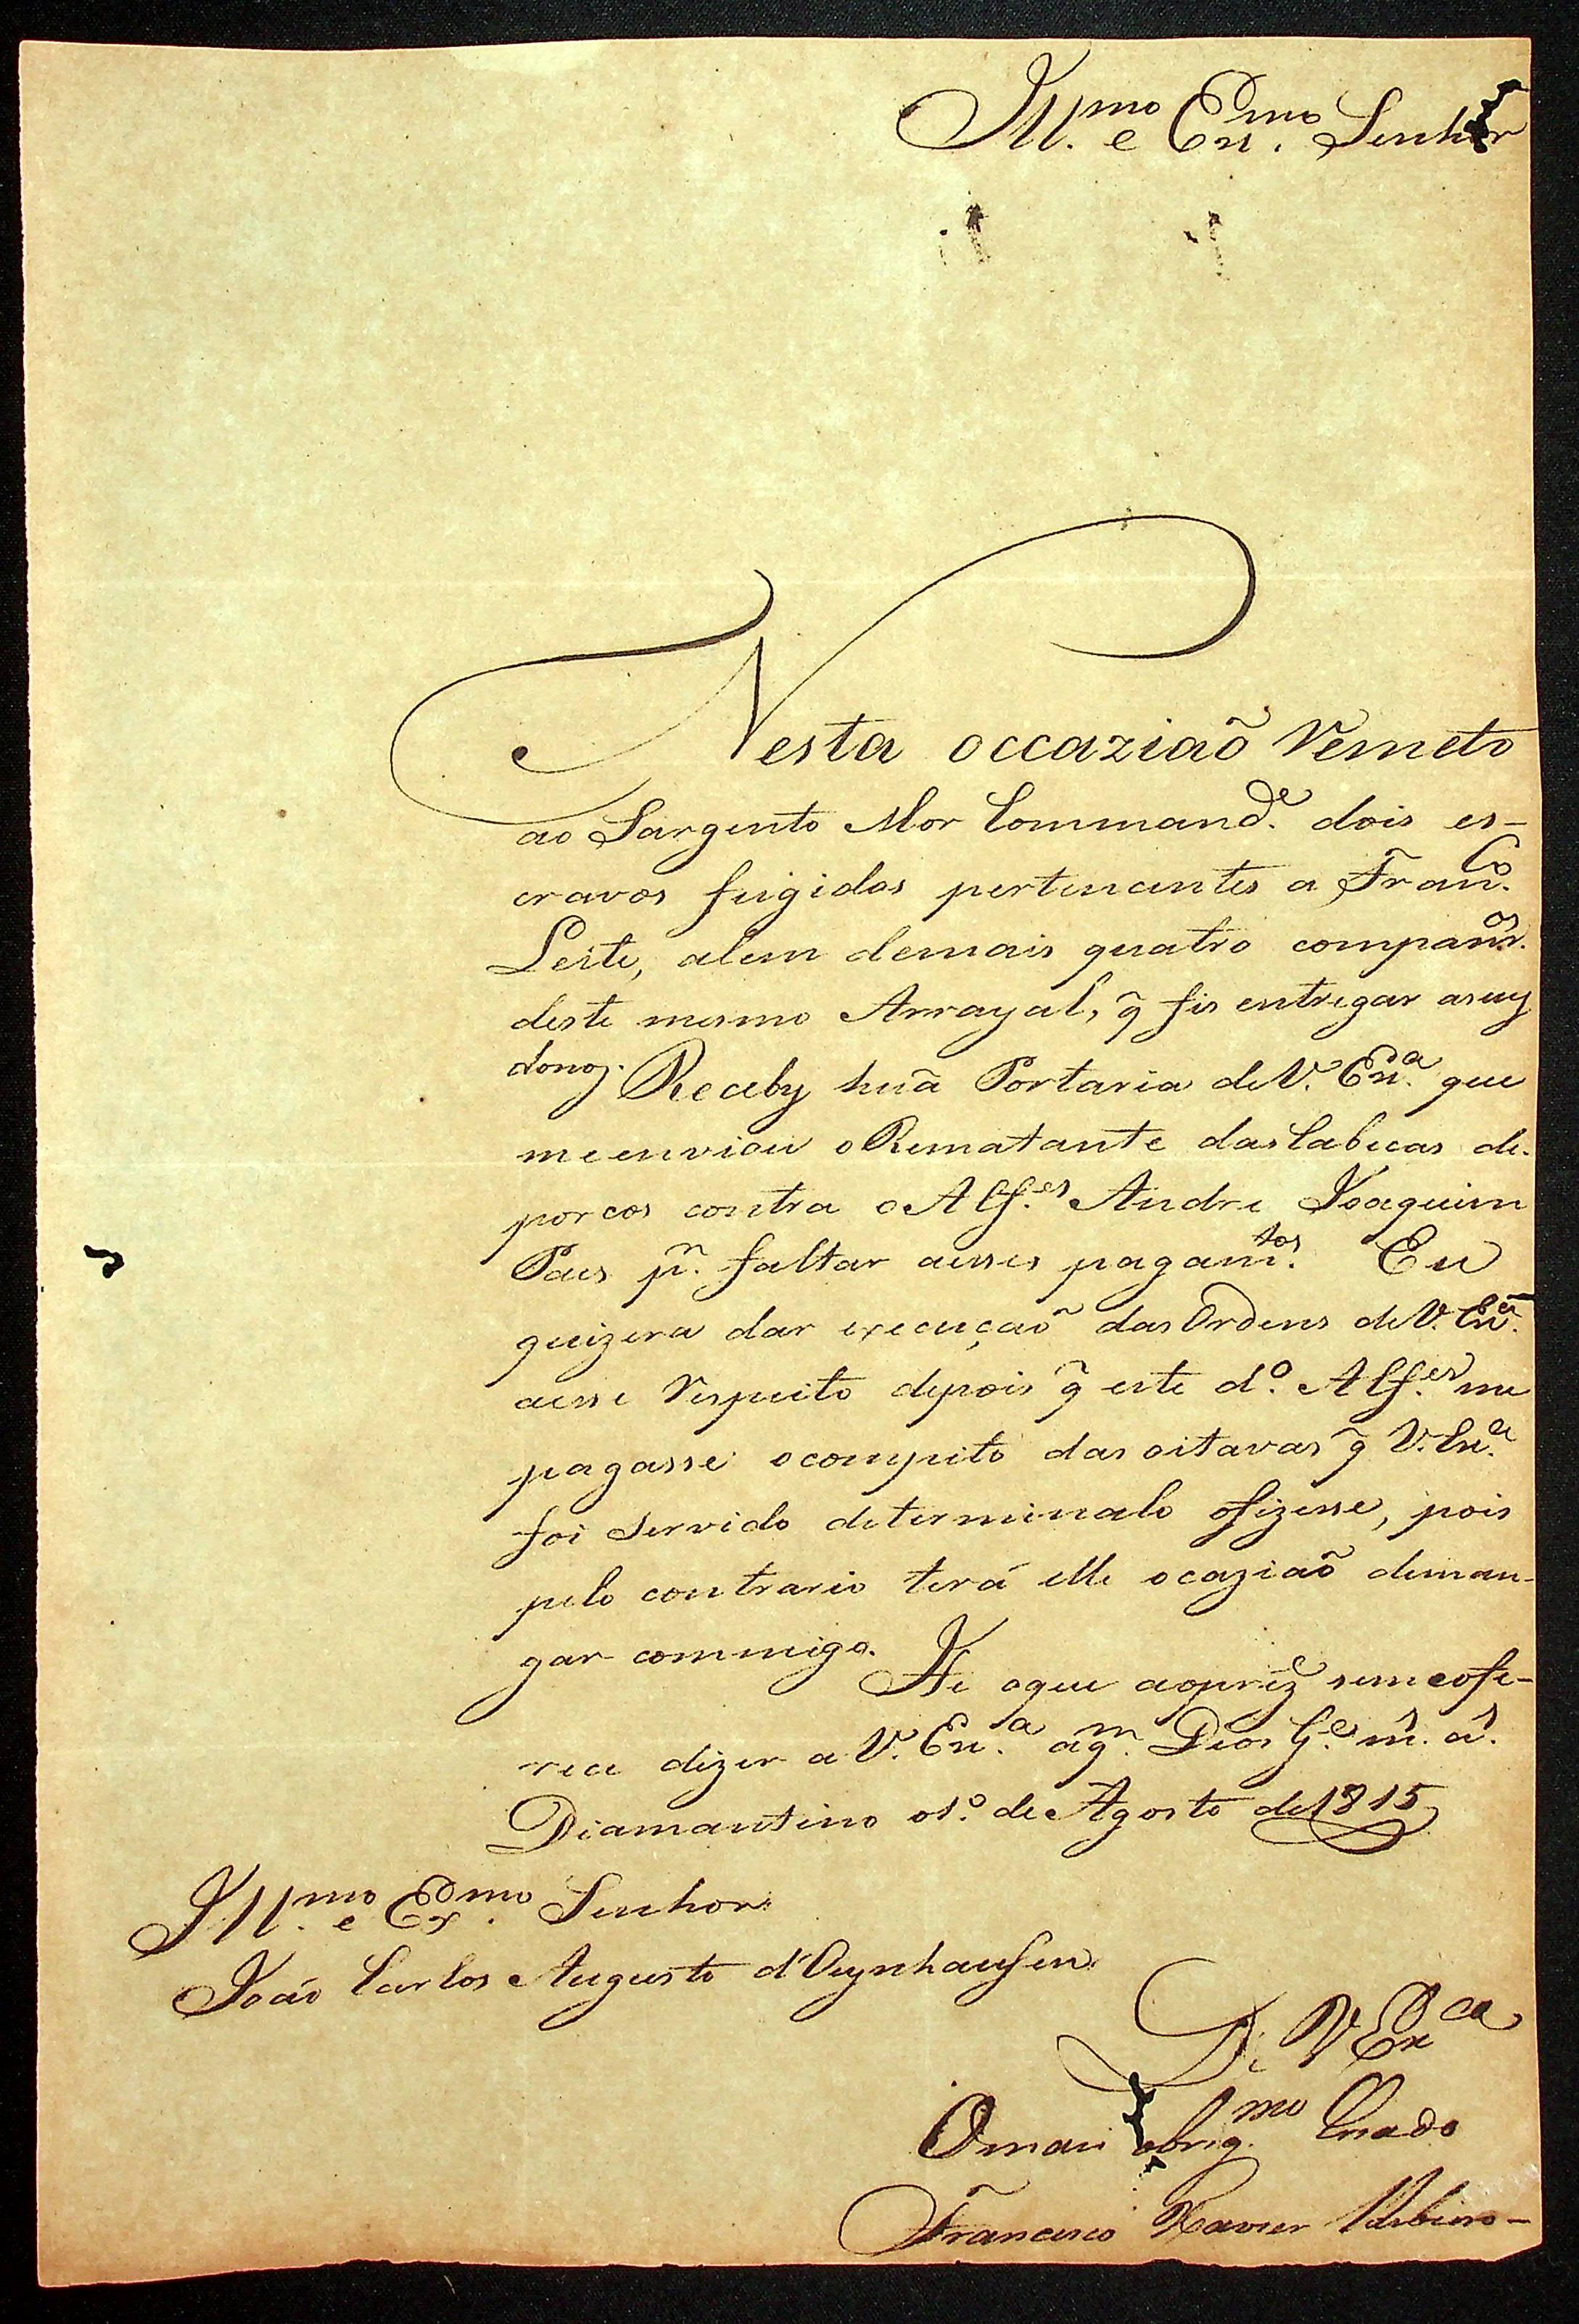 Ill.mo e Ex.mo Senhor
Nesta occaziaõ Remeto
ao Sargento Mor Command.e dois es-
cravos fugidos pertencentes a Fran.co
Leite, alem demais quatro companr.os
deste mesmo Arrayal, q̃ fis entregar aseuz
donoz. Receby huã Portaria de V. Ex.a que
meenviou o Rematante das Cabecas de
porcos contra o Alf.es Andre Joaquim
Paes p.r faltar aesses pagam.tos Eu
quizera dar execuçaõ das Ordens de V. Ex.a
aesse Respeito depois q̃ este d.o Alf.es me
pagasse ocomputo das oitavas q̃ V. Ex.a
foi Servido determinalo ofizesse, pois
pelo contrario terá elle ocaziaõ deman-
gar commigo. He oque aoprez.e semeofe-
rece dizer a V. Ex.a aq̃.m Deos G.e m.s a.s
Diamantino o 1.o de Agosto de 1815
Ill.mo e Ex.mo Senhor
João Carlos Augusto d'Oeynhausen
De V Ex.ca
Omais obrig.mo Criado
Francisco Xavier Ribeiro